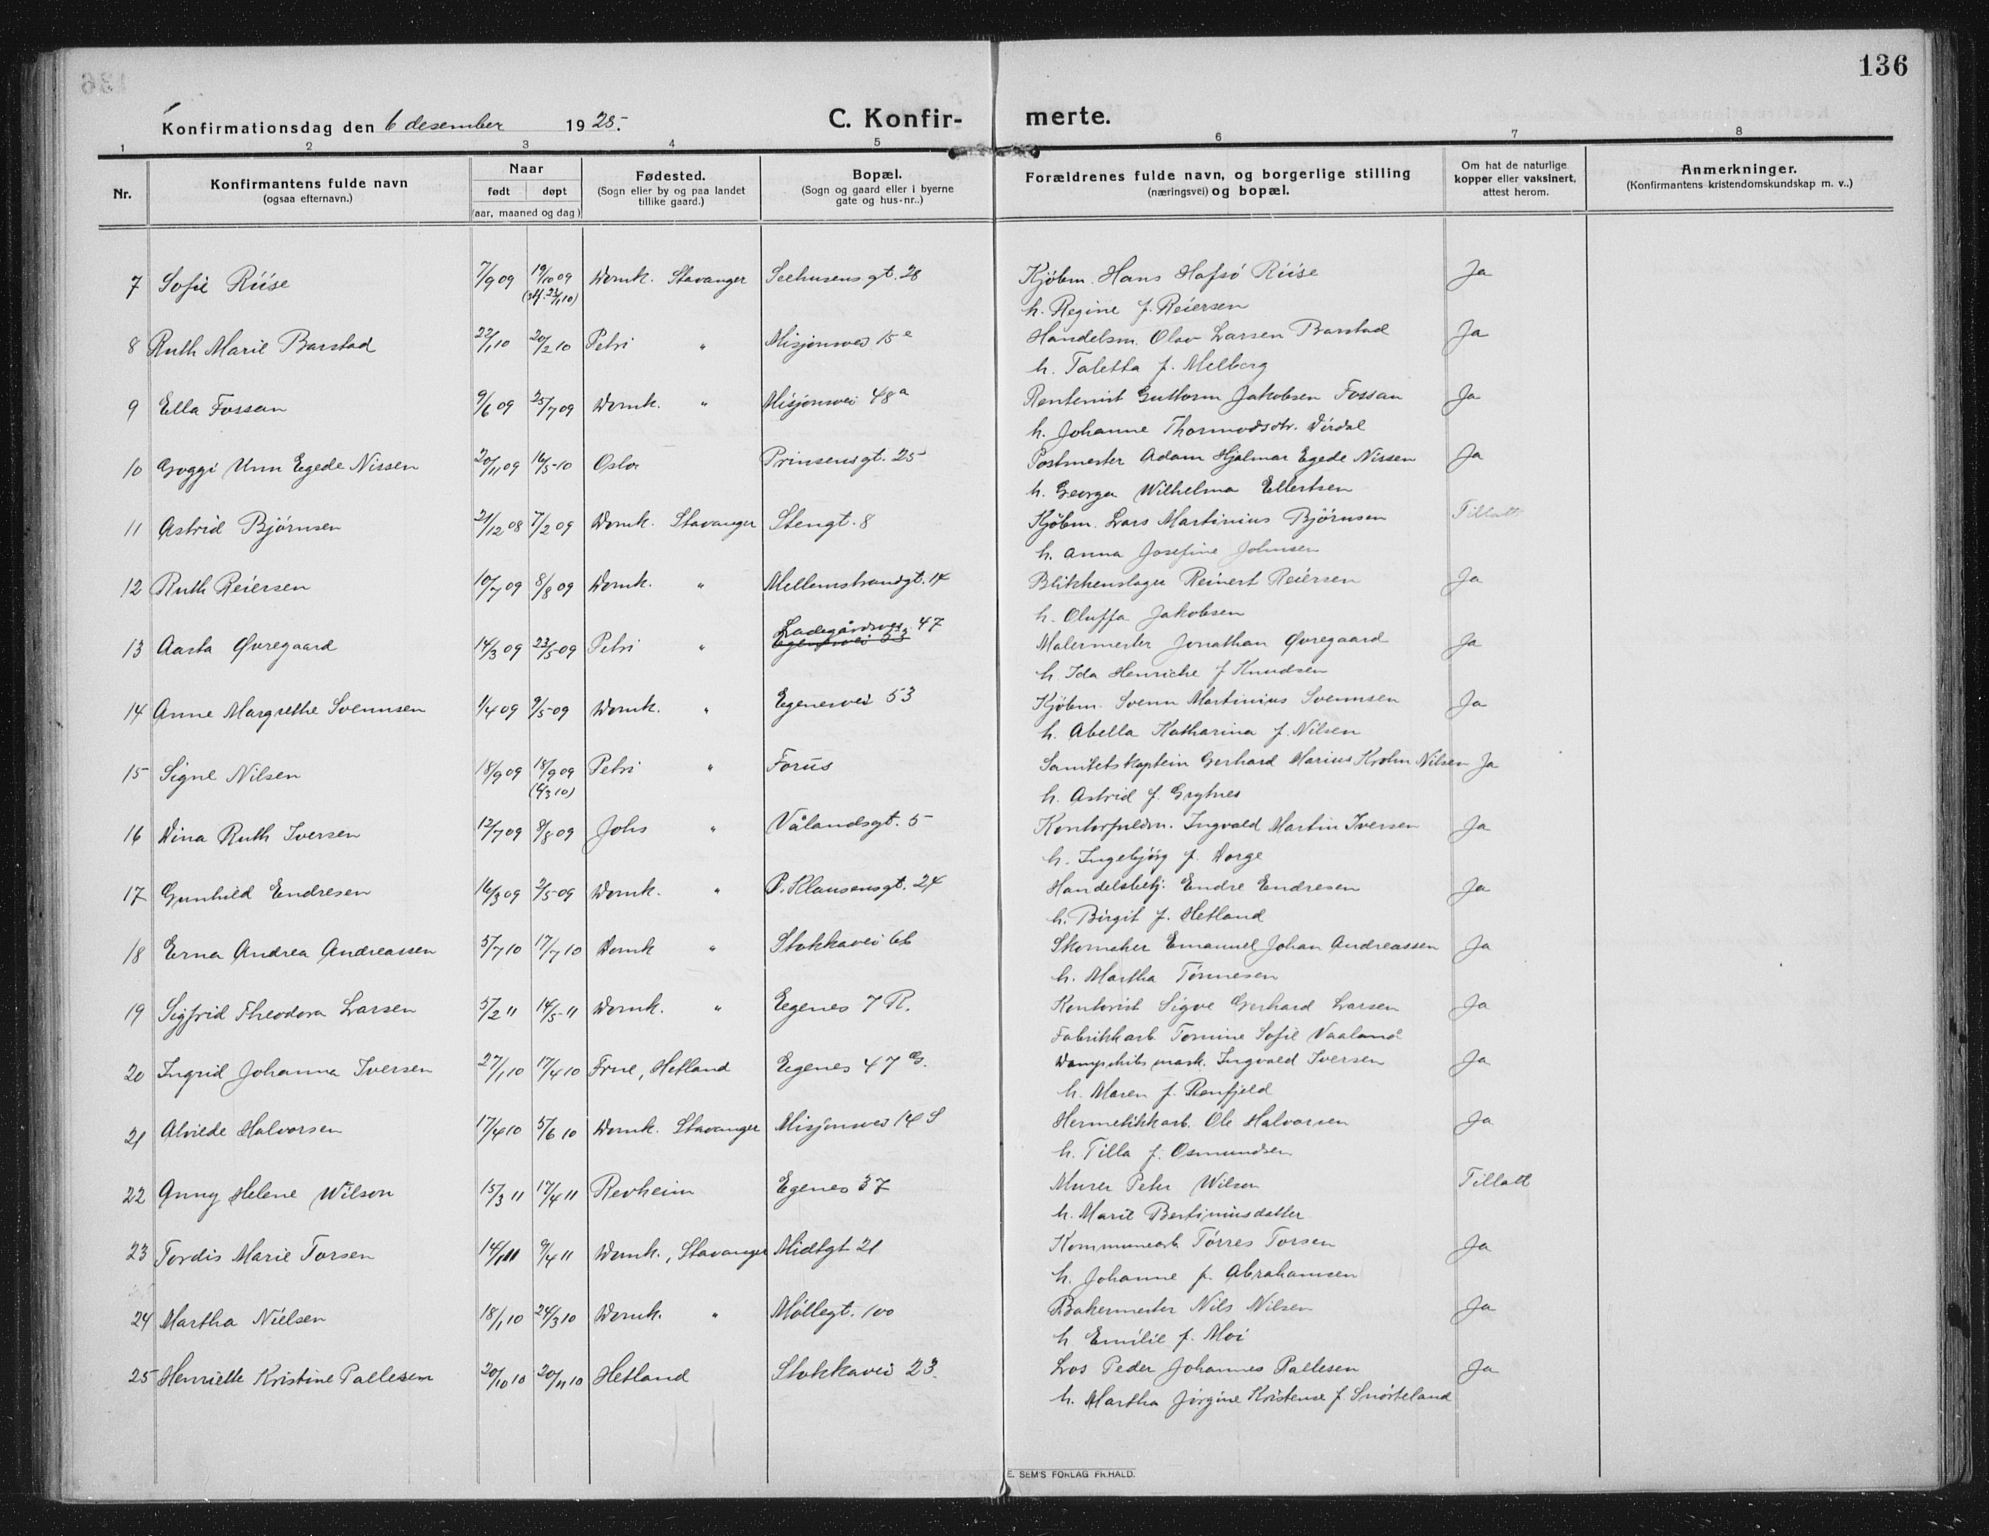 136
Konfirmationsdag den 6 desember 1925. C. Konfirmerte.
1 2 3 4 5 6 7 8
Nr. Konfirmantens fulde navn (ogsaa efternavn.) Naar født døpt (aar, maaned og dag) Fødested. (Sogn eller by og paa landet tillike gaard.) Bopæl. (Sogn og gaard eller i byerne gate og hus-nr..) Forældrenes fulde navn, og borgerlige stilling (næringsvei) og bopæl. Om hat de naturlige kopper eller vaksinert, attest herom. Anmerkninger. (Konfirmantens kristendomskundskap m. v..)
7 Sofie Riise 7/9 09 19/10 09 Domk. Stavanger Seehusensgt. 28 Kjøbm. Hans Hafsø Riise Ja
h. Regine f. Reiersen
8 Ruth Marie Barstad 22/1 10 20/2 10 Petri " Misjonsvei 15 e Handelsm. Olav Larsen Barstad Ja
h. Taletta f. Melberg
9 Ella Fossan 9/6 09 25/7 09 Domk. " Misjonsvei 48 a Rentenist Guttorm Jakobsen Fossan Ja
h. Johanne Thormodsdtr. Dirdal
10 Goggi Unn Egede Nissen 20/11 09 16/5-10 Oslo Prinsensgt. 25 Postmester Adam Hjalmar Egede Nissen Ja
h. Georga Wilhelma Ellertsen
11 Astrid Bjørnsen 21/12 08 7/2 09 Domk. Stavanger Stengt. 8 Kjøbm. Lars Martinius Bjørnsen Tillatt
h. Anna Josefine Johnsen
12 Ruth Reiersen 10/7 09 8/8 09 Domk. " Mellemstrandgt. 14 Blikkenslager Reinert Reiersen Ja
h. Oluffa Jakobsen
13 Aasta Øvregaard 14/3 09 23/5-09 Petri " Ladegårdsvei 47 Malermester Jonathan Øvregaard Ja
Egenesvei 53
h. Ida Henriche f Knudsen
14 Anne Margrethe Svennsen 1/4 09 9/5-09 Domk. " Egenesvei 53 Kjøbm. Svenn Martinius Svennsen Ja
h. Abella Katharina f. Nilsen
15 Signe Nilsen 18/9 09 18/9 09 Petri " Forus Sanitetskaptein Gerhard Marius Krohn Nilsen Ja
h. Astrid f. Grytnes
16 Dina Ruth Iversen 12/7 09 8/8 09 Johs " Vålandsgt. 5 Kontorfuldm. Ingvald Martin Iversen Ja
h. Ingebjørg f. Dorge
17 Gunhild Endresen 16/3 09 2/5-09 Domk. " P. Klausensgt. 24 Handelsbetj. Endre Endresen Ja
h. Birgit f. Hetland
18 Erna Andrea Andreassen 5/7 10 17/7 10 Domk " Stokkavei 66 Skomaker Emanuel Johan Andreassen Ja
h. Martha Tønnesen
19 Sigfrid Theodora Larsen 5/2 11 14/5-11 Domk. " Egenes 7 R. Kontorist Sigve Gerhard Larsen Ja
Fabrikkarb. Tomine Sofie Vaaland
20 Ingrid Johanna Iversen 27/1 10 17/4 10 Frue, Hetland Egenes 47 G. Dampskibsmask. Ingvald Iversen Ja
h. Maren f. Renfjeld
21 Alvilde Halvorsen 17/4 10 5/6 10 Domk. Stavanger Misjonsvei 14 S Hermetikkarb. Ole Halvorsen Ja
h. Tilla f. Osmundsen
22 Anny Helene Wilson 15/3 11 17/4 11 Revheim Egenes 37 Murer Peter Wilson Tillatt
h. Marie Bertiniusdatter
23 Tordis Marie Torsen 14/1 11 9/4 11 Domk., Stavanger Midtgt 21 Kommunearb. Tørres Torsen Ja
h. Johanne f. Abrahamsen
24 Martha Nielsen 18/1 10 24/3 10 Domk. " Møllegt. 100 Bakermester Nils Nilsen Ja
h Emilie f. Moi
25 Henriette Kristine Pallesen 20/10 10 20/11 10 Hetland Stokkavei 23. Los Peder Johannes Pallesen Ja
h. Martha Jørgine Kristense f. Snørteland
E. SEM'S FORLAG FR.HALD.